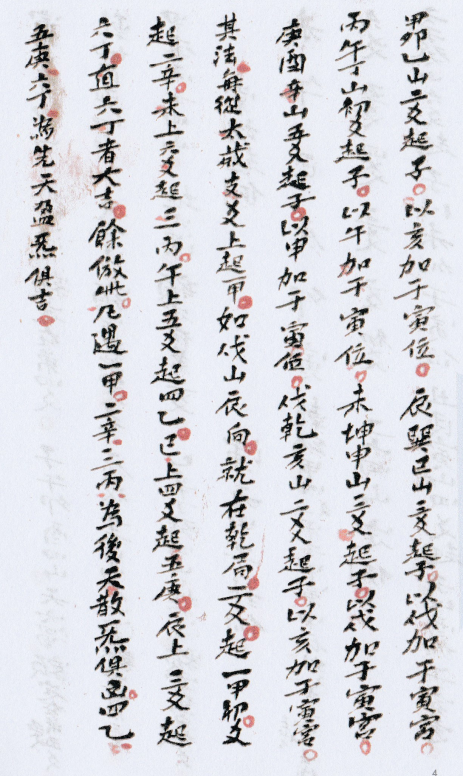 甲卯乙山二爻起子。以亥加于寅位。辰巽巳山二爻起子。以戌加于寅宮。
丙午丁山初爻起子。以午加于寅位。未坤申山三爻起子。以戌加于寅宮。
庚酉辛山五爻起子。以申加于寅位。戌乾亥山二爻起子。以亥加于寅宮。
其法每從太歲支爻上起甲。如戌山辰向。就在乾局。二爻起一甲。初爻
起二辛。未上六爻起三丙。午上五爻起四乙。巳上四爻起五庚。辰上三爻起
六丁。值六丁者大吉。餘倣此。凡遇一甲。二辛。三丙。為後天散炁俱凶。四乙。
五庚。六丁為先天盈炁俱吉。